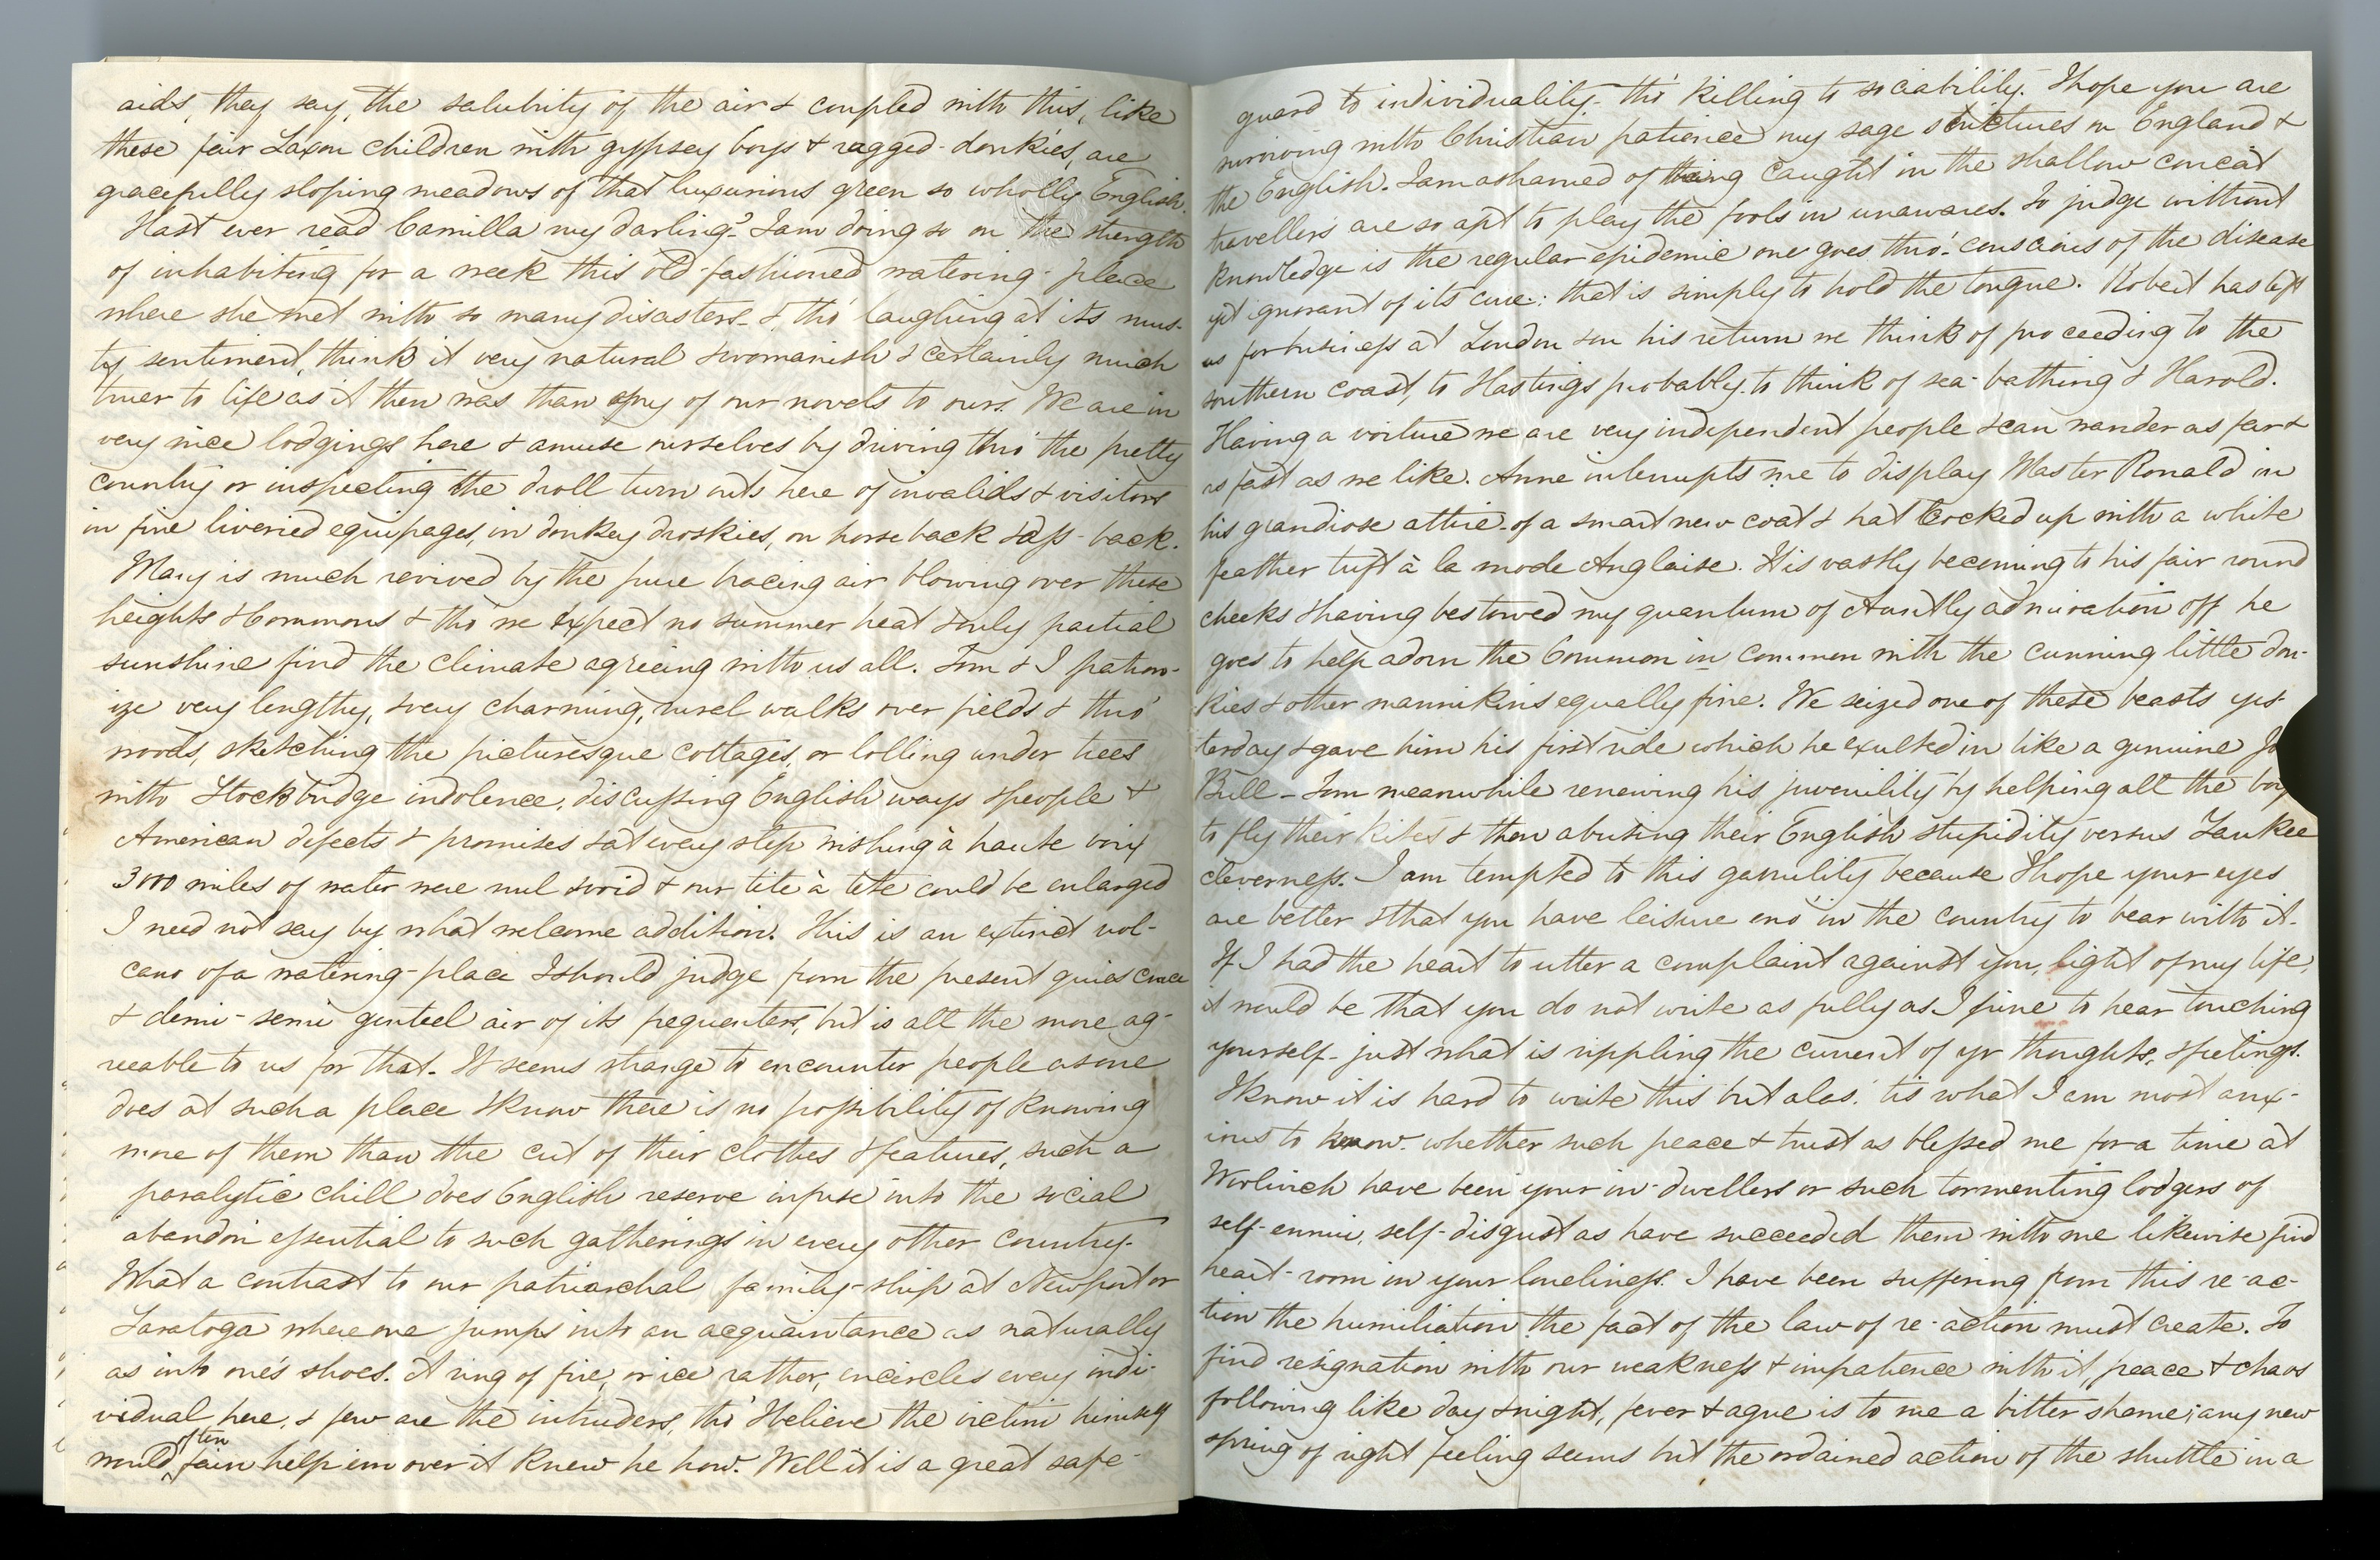 aids, they say, the salubrity of the air & coupled with this, like
these fair Saxon children with gypsey boys & ragged-donkies, are
gracefully sloping meadows of that luxurious green so wholly English.
Hast ever read Camilla my darling? I am doing so on the strength
of inhabiting for a week this old-fashioned watering-place
where she met with so many disasters- & tho' laughing at its mus-
ty sentiment, think it very natural & womanish & certainly much
truer to life as it then was than any of our novels to ours. We are in
very nice lodgings here & amuse ourselves by driving thro' the pretty
country or inspecting the droll turn outs here of invalids & visitors
in fine liveried equipages, in donkey droskies, on horseback & ass-back.
Mary is much revived by the pure bracing air blowing over these
heights & Commons & tho' we expect no summer heat & only partial
sunshine find the climate agreeing with us all. Tom & I patron-
ize very lengthy, & very charming, rural walks over fields & thro'
woods, sketching the picturesque cottages, or lolling under trees
with Stockbridge indolence, discussing English ways & people &
American defects & promises & at every step wishing à haute voix
3000 miles of water were nul & void & our tête à tête could be enlarged
I need not say by what welcome addition. This is an extinct vol-
cano of a watering-place I should judge from the present quiescence
& demi-semi genteel air of its frequenters, but is all the more ag-
reeable to us for that. It seems strange to encounter people as one
does at such a place & know there is no possibility of knowing
more of them than the cut of their clothes & features, such a
paralytic chill does English reserve infuse into the social
abandon essential to such gatherings in every other country.
What a contrast to our patriarchal family-ship at Newport or
Saratoga where one jumps into an acquaintance as naturally
as into one's shoes. A ring of fire, or ice rather, encircles every indi-
vidual here, & few are the intruders, tho' I believe the victim himself
would often fain help em over it knew he how. Well it is a great safe-
guard to individuality- tho' killing to sociability. I hope you are
surviving with Christian patience my sage strictures on England &
the English. I am ashamed of being caught in the shallow conceit
travellers are so apt to play the fools in unawares. To judge without
knowledge is the regular epidemic one goes thro'- conscious of the disease
yet ignorant of its cure: that is simply to hold the tongue. Robert has left
us for business at London & on his return we think of proceeding to the
southern coast, to Hastings probably. to think of sea-bathing & Harold.
Having a voiture we are very independent people & can wander as far &
as fast as we like. Anne interrupts me to display Master Ronald in
his grandiose attire- of a smart new coat & hat cocked up with a white
feather tuft à la mode Anglaise. It is vastly becoming to his fair round
cheeks & having bestowed my quantum of Auntly admiration off he
goes to help adorn the Common in common with the cunning little don-
kies & other mannikins equally fine. We seized one of these beasts yes-
terday & gave him his first ride which he exulted in like a genuine Jo
Bull- Tom meanwhile renewing his juvenility by helping all the boys
to fly their kites & then abusing their English stupidity versus Yankee
cleverness. I am tempted to this garrulity because I hope your eyes
are better & that you have leisure eno' in the country to bear with it.
If I had the heart to utter a complaint against you, light of my life,
it would be that you do not write as fully as I pine to hear touching
yourself- just what is rippling the current of yr thoughts, & feelings.
I know it is hard to write this but alas! tis what I am most anx-
ious to know. whether such peace & trust as blessed me for a time at
Woolwich have been your in-dwellers or such tormenting lodgers of
self-ennui, self-disgust as have succeeded them with me likewise find
heart-room in your loneliness. I have been suffering from this re-ac-
tion the humiliation the fact of the law of re-action must create. To
find resignation with our weakness & impatience with it, peace & chaos
following like day & night, fever & ague is to me a bitter shame; any new
spring of right feeling seems but the ordained action of the shuttle in a